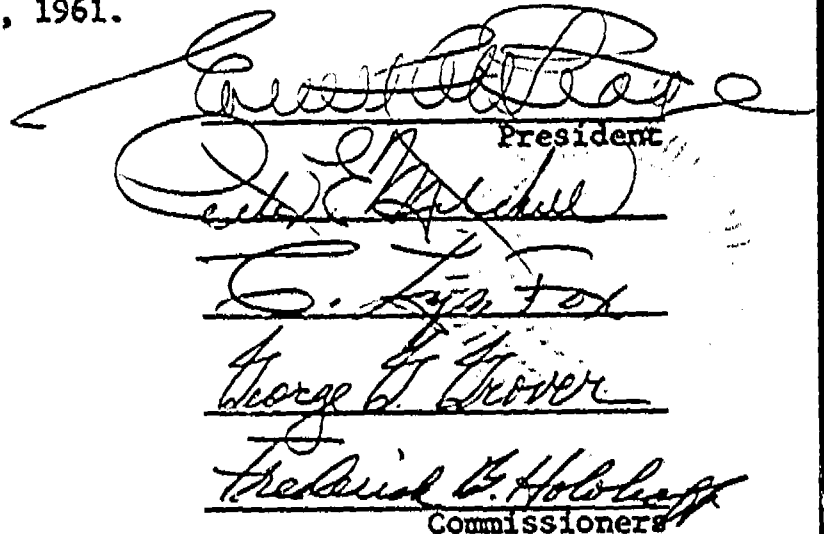 , 1961.
President
Peter E. Mitchell
C. Lyn Fox
George G. Grover
Frederick B. Holoboff
Commissioners